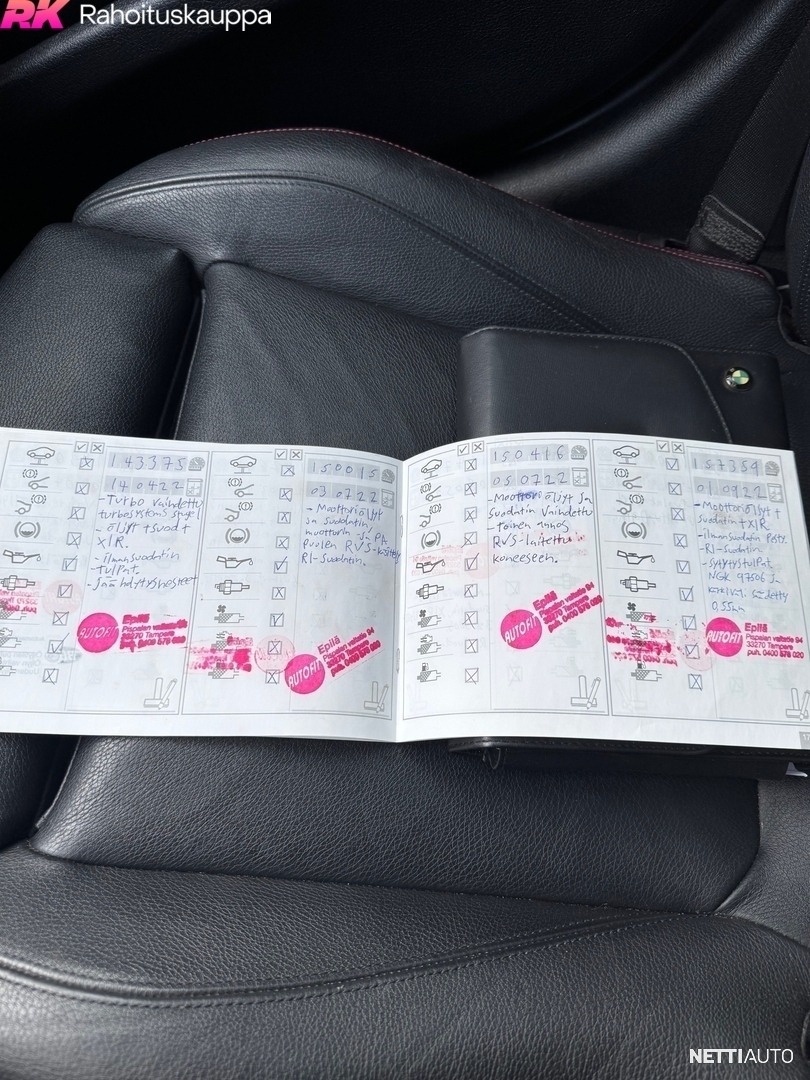 RK Rahoituskauppa
143375
140422
- Turbo vaihdettu
- öljyt + suod +
XIR.
- ilmansuodatin
tulpat.
- jäähdytysnesteet
AUTOFIT Epilä
Pispalan valtatie 94
33270 Tampere
puh. 0400 578 020
150015
030722
- Moottoriöljyt
ja suodatin,
moottorin ja PA
puolen RVS-käsittely
RI-suodatin.
AUTOFIT Epilä
Pispalan valtatie 94
33270 Tampere
puh. 0400 578 020
150416
050722
- Moottori öljyt ja
suodatin vaihdettu
- toinen annos
RVS-laitettu
koneeseen.
AUTOFIT Epilä
Pispalan valtatie 94
33270 Tampere
puh. 0400 578 020
157359
010922
- Moottoriöljyt +
suodatin + XIR
- ilmansuodatin
RI-suodatin
- sytytystulpat
NGK 97506 ja
kärkiväli säädetty
0,55mm
AUTOFIT Epilä
Pispalan valtatie 94
33270 Tampere
puh. 0400 578 020
NETTIAUTO